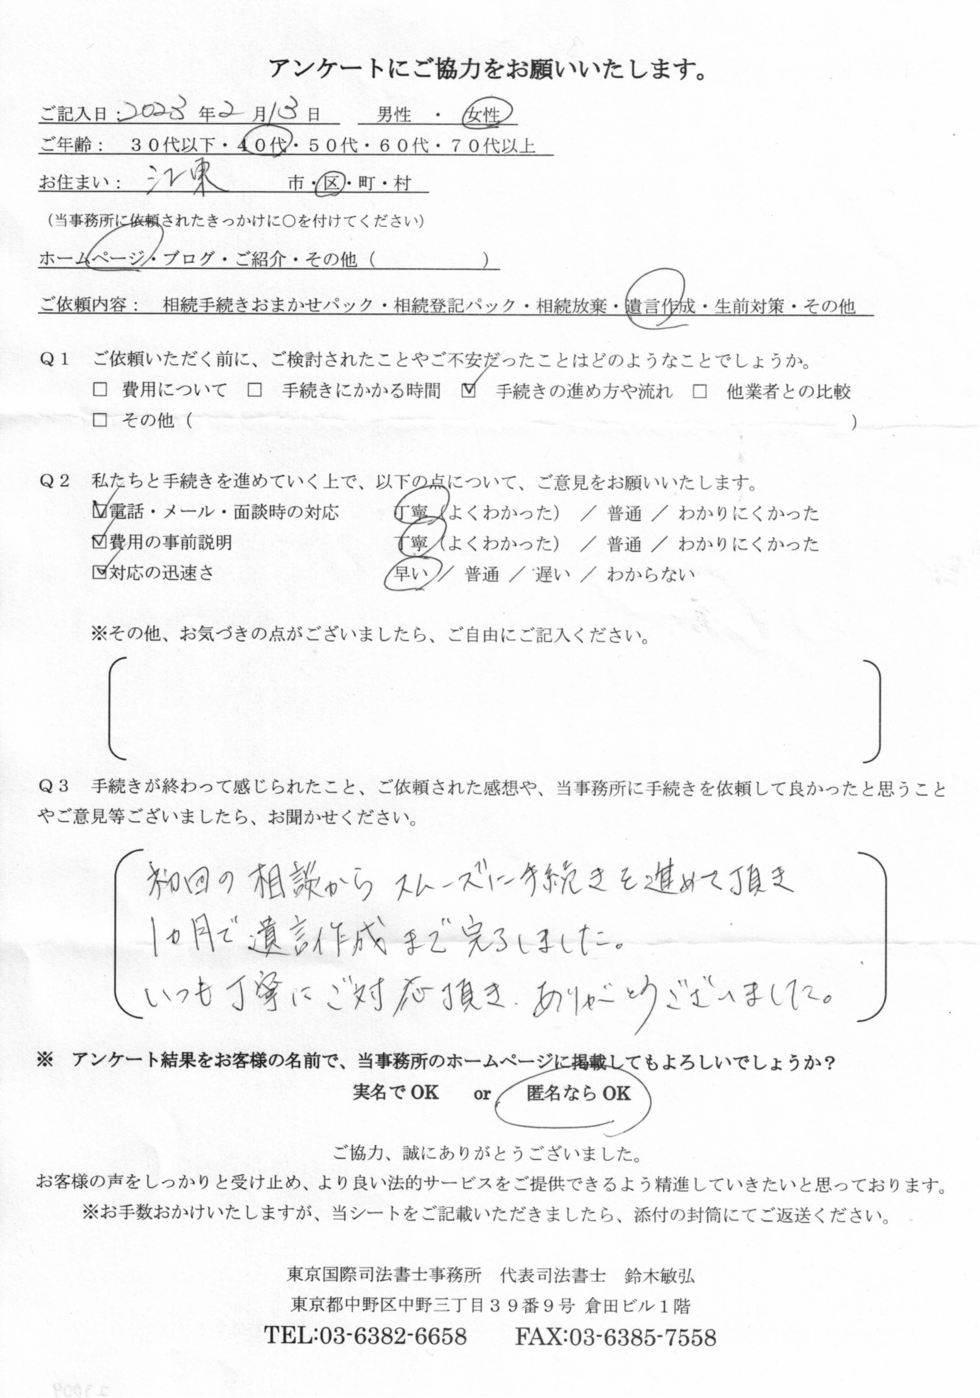 アンケートにご協力をお願いいたします。
ご記入日：2023 年 2 月 13 日　男性 ・ 女性
ご年齢：　３０代以下・４０代・５０代・６０代・７０代以上
お住まい：　江東　市・区・町・村
（当事務所に依頼されたきっかけに○を付けてください）
ホームページ・ブログ・ご紹介・その他（　　　　　　）
ご依頼内容：　相続手続きおまかせパック・相続登記パック・相続放棄・遺言作成・生前対策・その他
Ｑ１　ご依頼いただく前に、ご検討されたことやご不安だったことはどのようなことでしょうか。
□ 費用について　□ 手続きにかかる時間　☑ 手続きの進め方や流れ　□ 他業者との比較
□ その他（　　　　　　　　　　　　）
Ｑ２　私たちと手続きを進めていく上で、以下の点について、ご意見をお願いいたします。
☑電話・メール・面談時の対応　丁寧（よくわかった） ／ 普通 ／ わかりにくかった
☑費用の事前説明　丁寧（よくわかった） ／ 普通 ／ わかりにくかった
☑対応の迅速さ　早い ／ 普通 ／ 遅い ／ わからない
※その他、お気づきの点がございましたら、ご自由にご記入ください。
Ｑ３　手続きが終わって感じられたこと、ご依頼された感想や、当事務所に手続きを依頼して良かったと思うこと
やご意見等ございましたら、お聞かせください。
初回の相談からスムーズに手続きを進めて頂き
1ヵ月で遺言作成まで完了しました。
いつも丁寧にご対応頂き、ありがとうございました。
※　アンケート結果をお客様の名前で、当事務所のホームページに掲載してもよろしいでしょうか？
実名でOK　or　匿名ならOK
ご協力、誠にありがとうございました。
お客様の声をしっかりと受け止め、より良い法的サービスをご提供できるよう精進していきたいと思っております。
※お手数おかけいたしますが、当シートをご記載いただきましたら、添付の封筒にてご返送ください。
東京国際司法書士事務所　代表司法書士　鈴木敏弘
東京都中野区中野三丁目３９番９号 倉田ビル１階
TEL:03-6382-6658　FAX:03-6385-7558